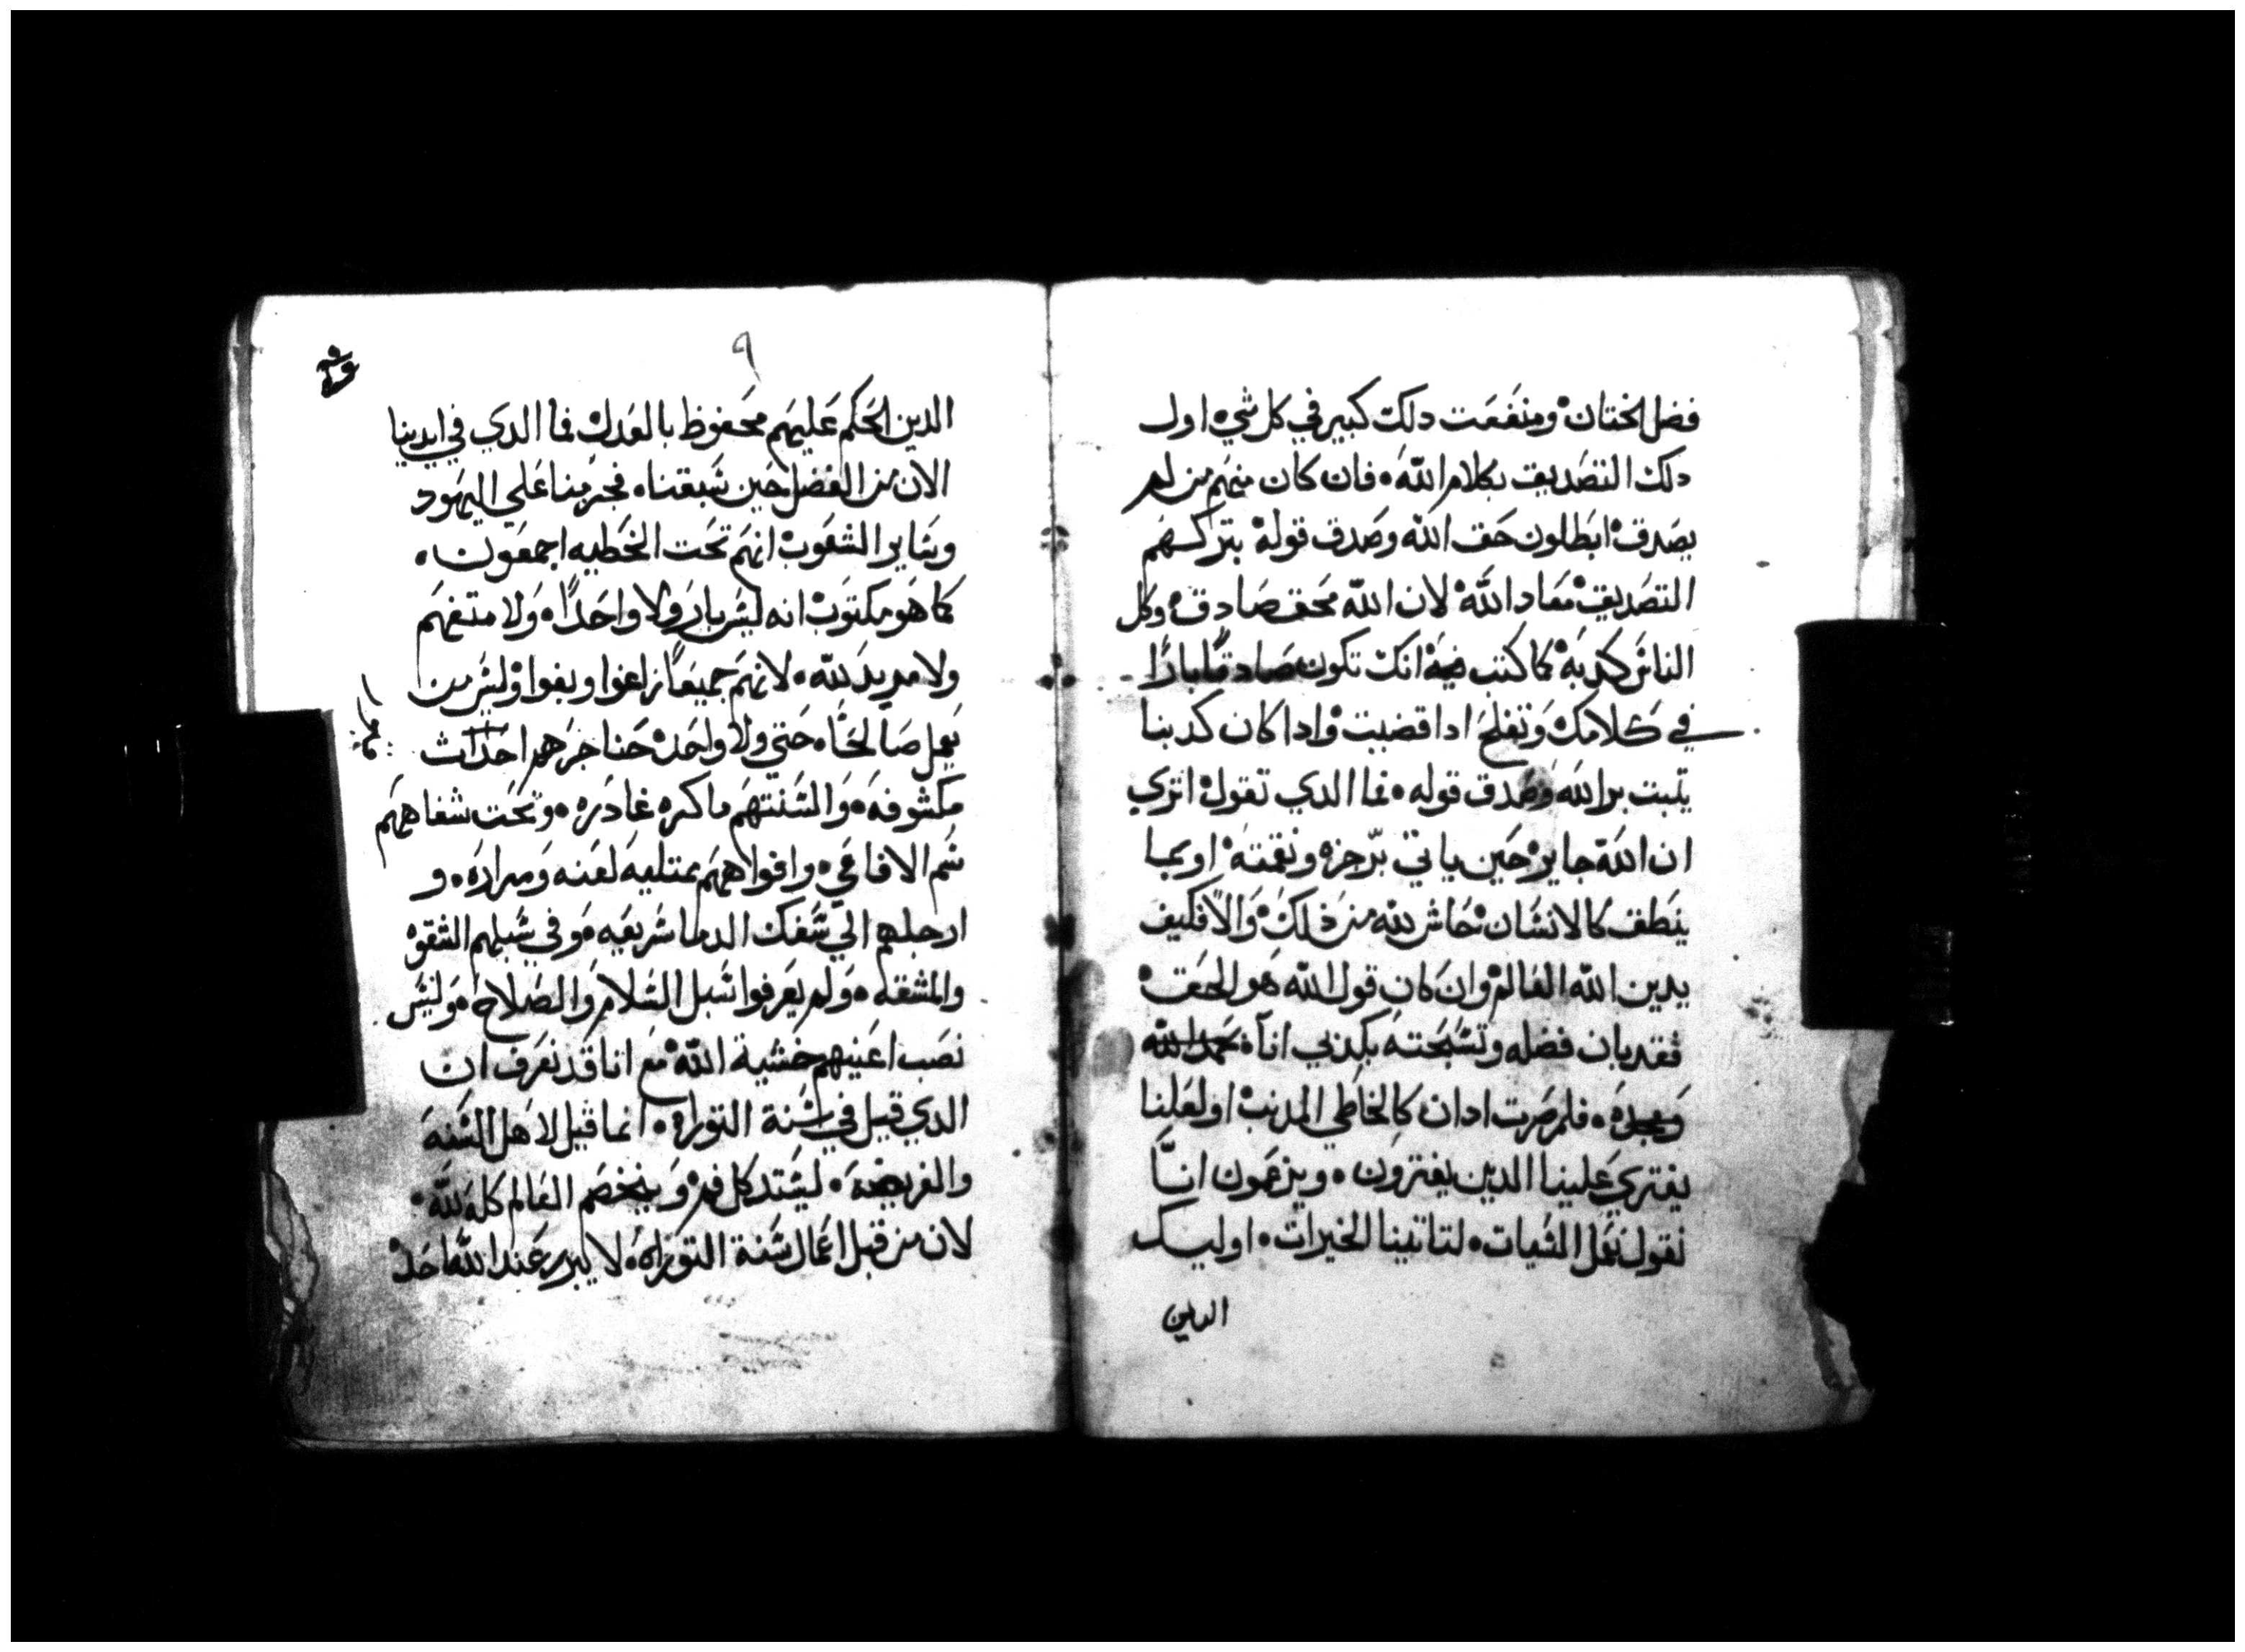 فضل الختان ومنفعت دلك كبير في كل شي اول
دلك التصديق بكلام الله فان كان منهم من لم
يصدق ابطلون حق الله وصدق قوله بتركهم
التصديق معاد الله لان الله محق صادق وكل
الناس كدبه كما كتب فيه انك تكون صادقا بارا
في كلامك وتفلح ادا قضيت وادا كان كدبنا
يتبت بر الله وصدق قوله فما الدي تقول اتري
ان الله جاير حين ياتي برجزه ونقمته او بما
ينطق كالانسان حاش لله من ذلك والا فكيف
يدين الله العالم وان كان قول الله هو الحق
فقد بان فضله وتسبحته بكذبي انا
فلم صرت ادان كالخاطي المدنب او لعلنا
يفتري علينا الدين يفترون ويزعمون انا
نقول نعمل السيات لتاتينا الخيرات اوليك
الدين
٩
الدين الحكم عليهم محفوظ بالعدل فما الدي في ايدينا
الان من الفضل حين سبقنا فجزمنا علي اليهود
وساير الشعوب انهم تحت الخطيه اجمعون
كما هو مكتوب انه ليس بار ولا واحدا ولا متفهم
ولا مريد لله لانهم جميعا زاغوا وبغوا وليس من
يعمل صالحا حتي ولا واحد حناجرهم احدات
مكشوفه والسنتهم ماكره غادره وتحت شفاههم
سم الافاعي وافواههم ممتليه لعنه ومراره و
ارجلهم الي سفك الدما سريعه وفي سبلهم الشقوه
والمشقه ولم يعرفوا سبل السلام والصلاح وليس
نصب اعينهم خشية الله مع انا قد نعرف ان
الدي قيل في سنة التوراه انما قيل لاهل السنه
والفريضه ليستد كل فم و يخصم العالم كله لله
لان من قبل اعمال سنة التوراه لا يبرر عند الله احد